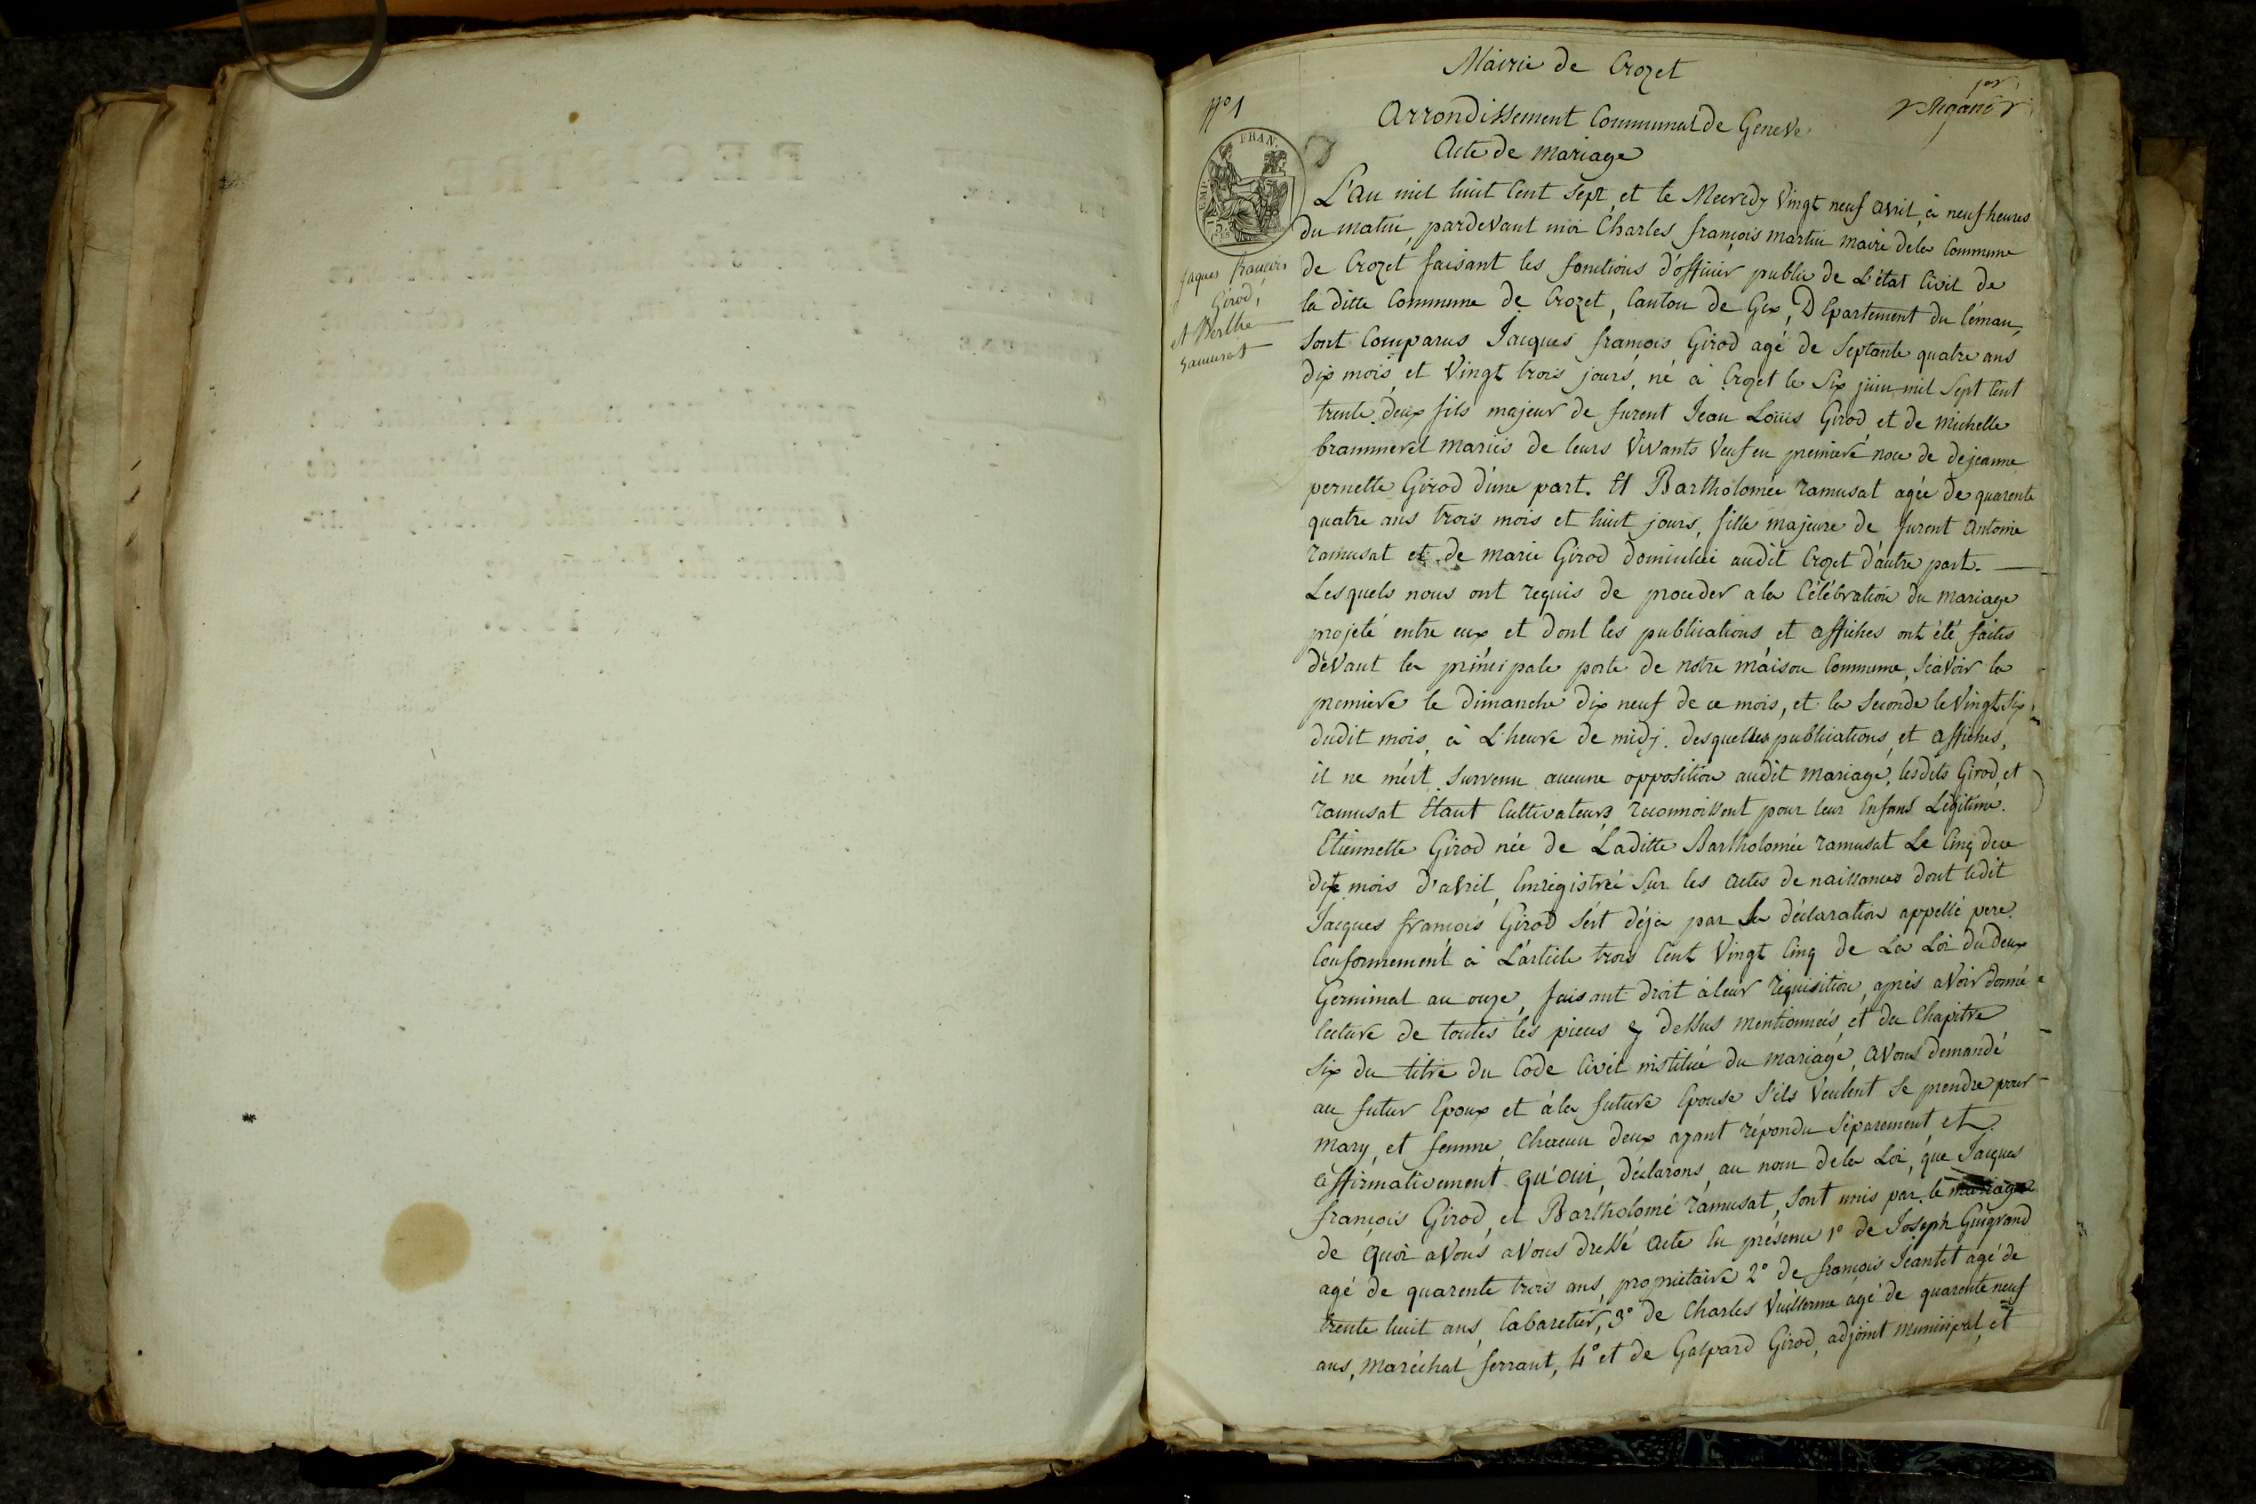 Mairie de Crozet
1er
N° 1
Arrondissement Communal de Geneve
Acte de Mariage
EMP. FRAN.
L'an mil huit cent sept, et le Mecredy vingt neuf avril, à neuf heures
du matin, pardevant moi Charles françois martin maire de la Commune
de Crozet faisant les fonctions d'officier public de L'état Civil de
la ditte Commune de Crozet, Canton de Gex, Département du Léman,
Sont Comparus Jacques françois Girod agé de Septante quatre ans
dix mois et Vingt trois jours, né à Crozet le Six juin mil Sept Cent
trente deux fils majeur de furent Jean Louis Girod et de michelle
brammerel mariés de leurs Vivants Veuf en premiere noce de dejeanne
pernette Girod d'une part. Et Bartholomée ramusat agée de quarente
quatre ans trois mois et huit jours, fille majeure de furent Antoine
ramusat et de marie Girod domiciliée audit Crozet d'autre part.
Lesquels nous ont requis de proceder a la Célébration du mariage
projeté entre eux et dont les publications et affiches ont été faites
devant la principale porte de notre maison Commune, Scavoir la
premiere le dimanche dix neuf de ce mois, et la Seconde le Vingt Six
dudit mois, à L'heure de midy. desquelles publications, et affiches,
il ne m'est survenu aucune opposition audit mariage, lesdits Girod, et
ramusat Etant Cultivateurs reconnoissent pour leur Enfans Légitime.
Etiennette Girod née de Laditte Bartholomée ramusat Le Cinq due
dite mois d'avril, Enregistrée Sur les actes de naissances dont ledit
Jacques françois Girod s'est déja par sa déclaration appellé pere.
Conformement à L'article trois Cent Vingt Cinq de La Loi du deux
Germinal an onze, faisant droit à leur réquisition, après avoir donné
lecture de toutes les pieces cy dessus mentionnées, et du Chapitre
Six du titre du Code Civil institué du mariage, avons demandé
au futur Epoux et à la future Epouse S'ils veulent se prendre pour
mary, et femme, chacun deux ayant répondu Séparement et
affirmativement qu'oui, déclarons, au nom de la Loi, que Jacques
françois Girod, et Bartholomé ramusat, Sont unis par le mariage
de quoi avons avons dressé acte En présence 1° de Joseph Guigrand
agé de quarente trois ans, propriétaire 2° de françois Jeantet agé de
trente huit ans, Cabaretier, 3° de Charles Vuillerme agé de quarente neuf
ans, Maréchal ferrant, 4° et de Gaspard Girod, adjoint municipal, et
Jaques francois
Girod,
et Berthe
Ramusat